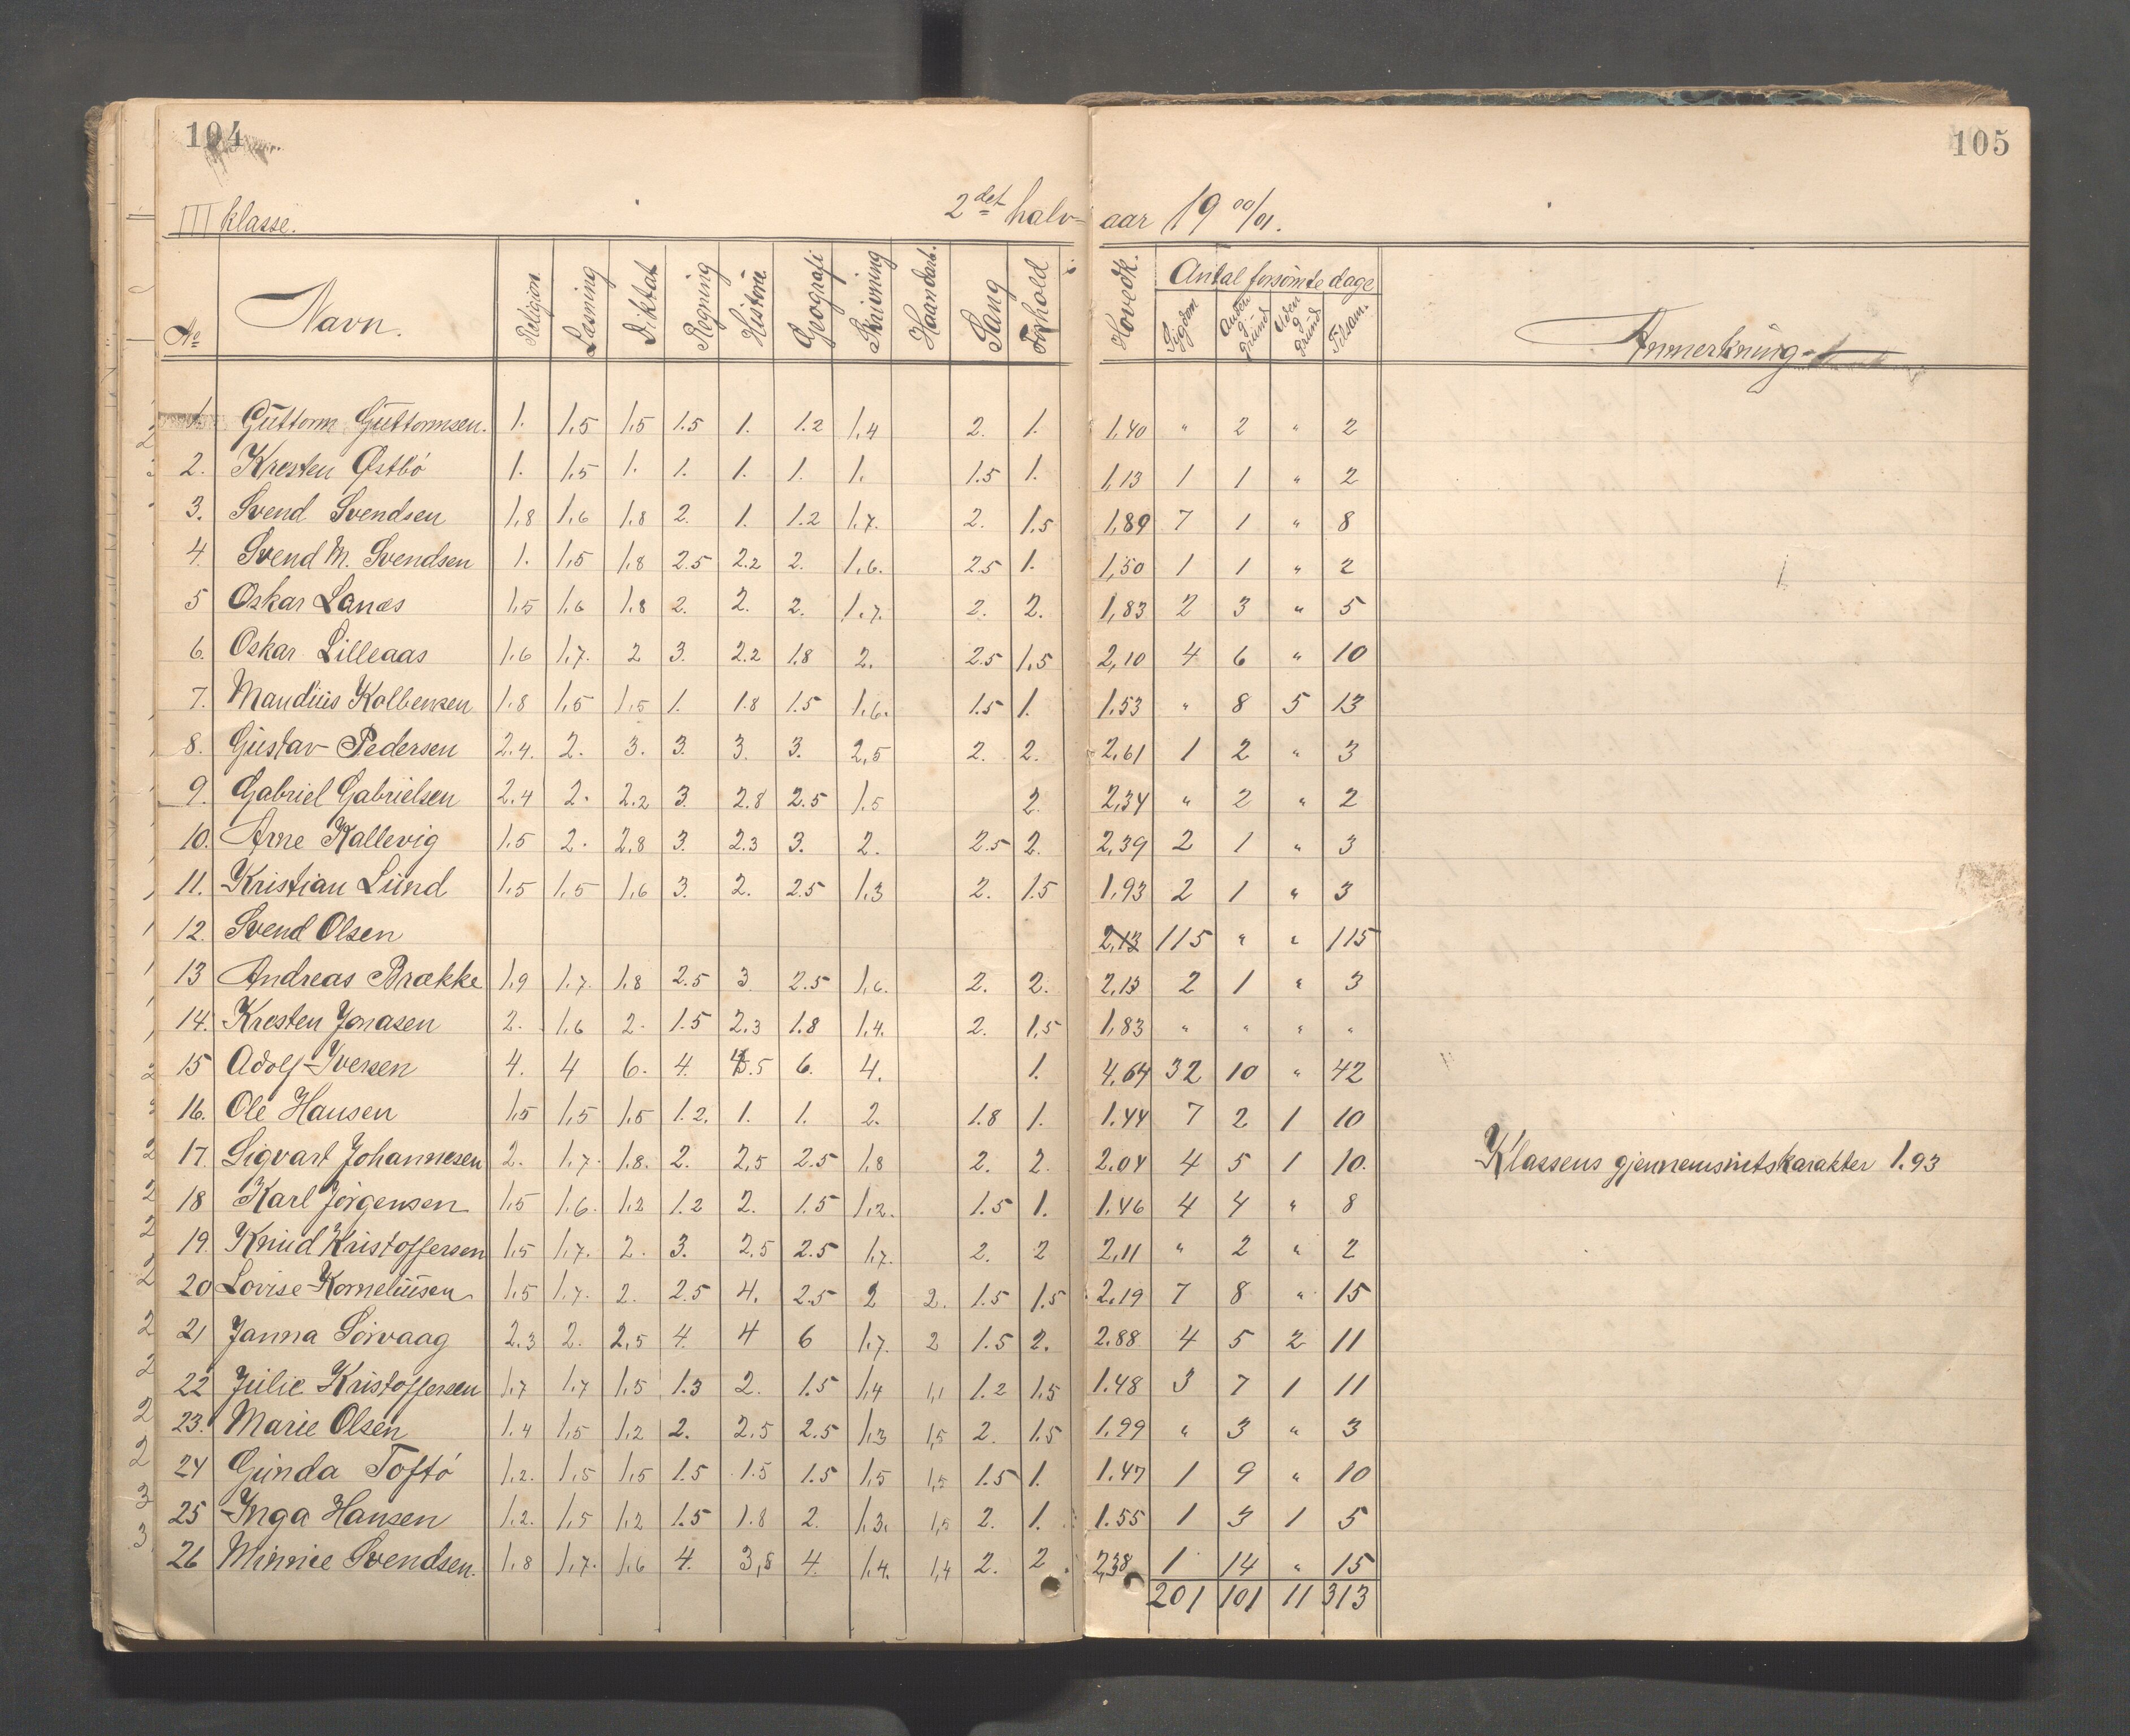 104
105
III klasse. 2det halv-aar 19 00/01.
№ Navn. Religion Læsning Diktat Regning Historie Geografi Skrivning Haandarb. Sang Forhold Hovedk. Antal forsömte dage Anmerkning
Sygdom Anden g. grund Uden g. grund Tilsam.
1. Guttorm Guttormsen. 1. 1,5 1,5 1.5 1. 1.2 1,4 2. 1. 1,40 " 2 " 2
2. Kresten Østbö 1. 1,5 1. 1. 1. 1. 1. 1.5 1. 1,13 1 1 " 2
3. Svend Svendsen 1,8 1,6 1,8 2. 1. 1.2 1,7. 2. 1.5 1,89 7 1 " 8
4. Svend M. Svendsen 1. 1,5 1,8 2.5 2.2 2. 1,6. 2.5 1. 1,50 1 1 " 2
5 Oskar Lanæs 1,5 1,6 1,8 2. 2. 2. 1,7. 2. 2. 1,83 2 3 " 5
6. Oskar Lilleaas 1,6 1,7. 2 3. 2.2 1.8 2. 2.5 1,5 2,10 4 6 " 10
7. Mandius Kolbensen 1.8 1,5 1,5 1. 1.8 1.5 1,6. 1.5 1. 1.53 " 8 5 13
8. Gustav Pedersen 2.4. 2. 3. 3. 3. 3. 2,5 2. 2. 2,61 1 2 " 3
9. Gabriel Gabrielsen 2.4 2. 2.2 3. 2.8 2.5 1.5 2. 2,34 " 2 " 2
10. Arne Kallevig 1.5 2. 2.8 3. 2.3 3. 2. 2.5 2. 2,39 2 1 " 3
11. Kristian Lund 1,5 1,5 1,6 3. 2. 2.5 1,3 2. 1.5 1.93 2 1 " 3
12. Svend Olsen 2,13 115 " " 115
13 Andreas Brække 1,9 1,7. 1,8 2.5 3 2.5 1,6. 2. 2. 2,13 2 1 " 3
14. Kresten Jonasen 2. 1,6 2. 1.5 2.3 1.8 1,4. 2. 1,5 1,83 " " " "
15 Adolf Iversen 4. 4 6. 4. 4.5 6. 4. 1. 4,64 32 10 " 42
16. Ole Hansen 1,5 1,5 1,5 1.2. 1. 1. 2. 1.8 1. 1.44 7 2 1 10
17. Sigvart Johannesen 2. 1,7. 1,8. 2. 2,5 2.5 1,8 2. 2. 2.04 4 5 1 10. Klassens gjennemsnitskarakter 1.93
18 Karl Jörgensen 1,5 1,6. 1,2 1.2 2. 1.5 1,2. 1.5 1. 1.46 4 4 " 8
19. Knud Kristoffersen 1,5 1,7. 2. 3. 2,5 2.5 1,7. 2. 2 2,11 " 2 " 2
20 Lovise Korneliusen 1,5 1,7. 2. 2.5 4. 2.5 2 2. 1.5 1.5 2,19 7 8 " 15
21 Janna Sörvaag 2.3 2. 2,5 4. 4 6 1,7. 2 1.5 2. 2.88 4 5 2 11
22 Julie Kristoffersen 1,7 1,7 1,5 1.3 2. 1.5 1,4 1,1 1.2 1,5 1.48 3 7 1 11
23. Marie Olsen 1.4 1,5 1,2 2. 2.5 2.5 1,3 1,5 2. 1.5 1.99 " 3 " 3
24 Gunda Toftö 1,2. 1,5 1,5 1.5 1.5 1.5 1,5 1,5 1.5 1. 1.47 1 9 " 10
25 Inga Hansen 1,2. 1,5 1,2 1.5 1.8 2. 1,3. 1,5 2. 1. 1.55 1 3 1 5
26 Minnie Svendsen. 1,8 1,7. 1,6 4. 3,5 4. 1,4. 1,4 2. 2 2,38 1 14 " 15
201 101 11 313